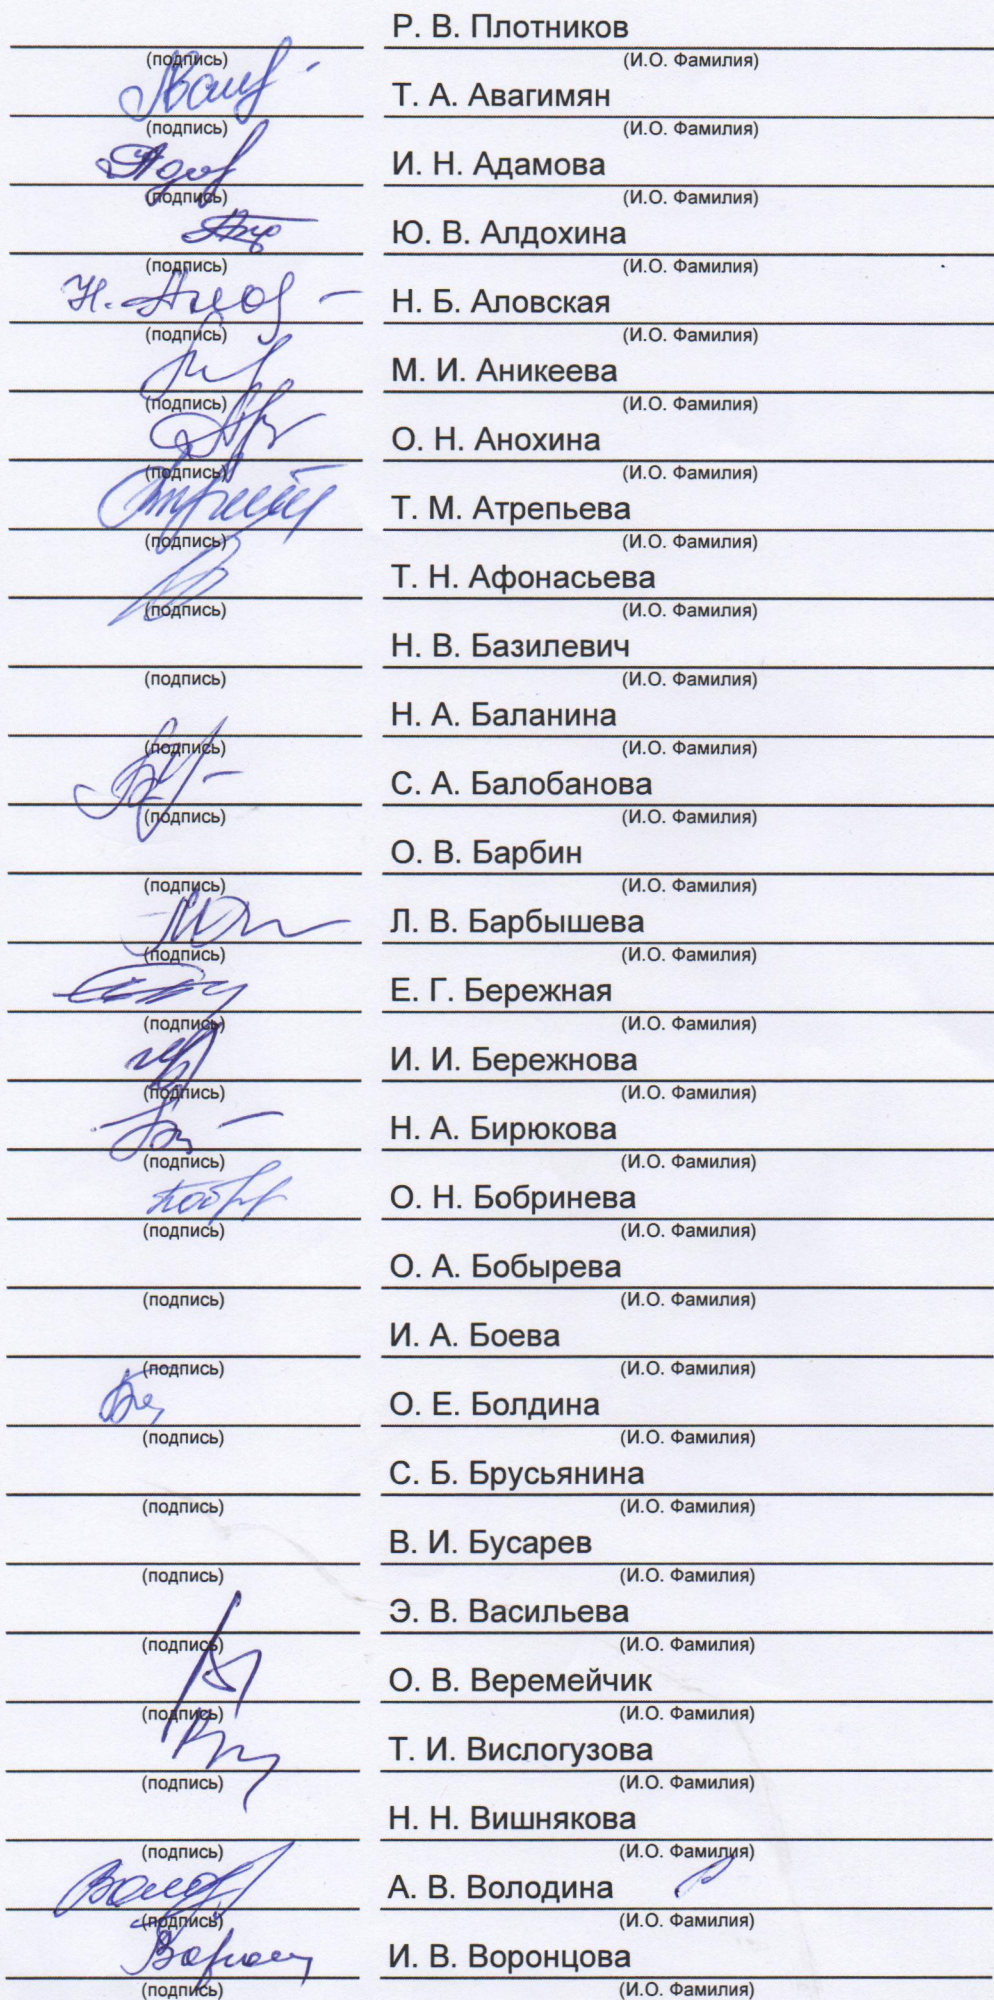 Р. В. Плотников
(подпись) (И.О. Фамилия)
Т. А. Авагимян
(подпись) (И.О. Фамилия)
И. Н. Адамова
(подпись) (И.О. Фамилия)
Ю. В. Алдохина
(подпись) (И.О. Фамилия)
Н. Б. Аловская
(подпись) (И.О. Фамилия)
М. И. Аникеева
(подпись) (И.О. Фамилия)
О. Н. Анохина
(подпись) (И.О. Фамилия)
Т. М. Атрепьева
(подпись) (И.О. Фамилия)
Т. Н. Афонасьева
(подпись) (И.О. Фамилия)
Н. В. Базилевич
(подпись) (И.О. Фамилия)
Н. А. Баланина
(подпись) (И.О. Фамилия)
С. А. Балобанова
(подпись) (И.О. Фамилия)
О. В. Барбин
(подпись) (И.О. Фамилия)
Л. В. Барбышева
(подпись) (И.О. Фамилия)
Е. Г. Бережная
(подпись) (И.О. Фамилия)
И. И. Бережнова
(подпись) (И.О. Фамилия)
Н. А. Бирюкова
(подпись) (И.О. Фамилия)
О. Н. Бобринева
(подпись) (И.О. Фамилия)
О. А. Бобырева
(подпись) (И.О. Фамилия)
И. А. Боева
(подпись) (И.О. Фамилия)
О. Е. Болдина
(подпись) (И.О. Фамилия)
С. Б. Брусьянина
(подпись) (И.О. Фамилия)
В. И. Бусарев
(подпись) (И.О. Фамилия)
Э. В. Васильева
(подпись) (И.О. Фамилия)
О. В. Веремейчик
(подпись) (И.О. Фамилия)
Т. И. Вислогузова
(подпись) (И.О. Фамилия)
Н. Н. Вишнякова
(подпись) (И.О. Фамилия)
А. В. Володина
(подпись) (И.О. Фамилия)
И. В. Воронцова
(подпись) (И.О. Фамилия)